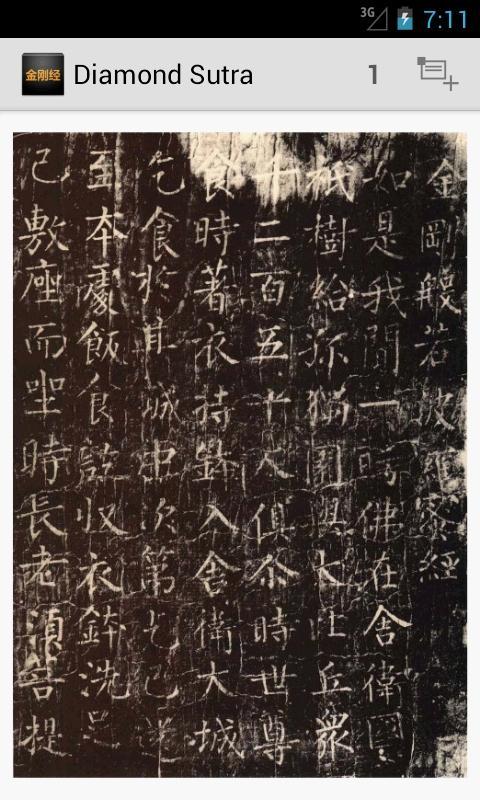 3G 7:11
金刚经 Diamond Sutra 1
金剛般若波羅蜜經
如是我聞一時佛在舍衛國
祇樹給孤獨園與大比丘衆
千二百五十人俱尒時世尊
食時著衣持鉢入舍衛大城
乞食於其城中次第乞已還
至本處飯食訖收衣鉢洗足
已敷座而坐時長老須菩提